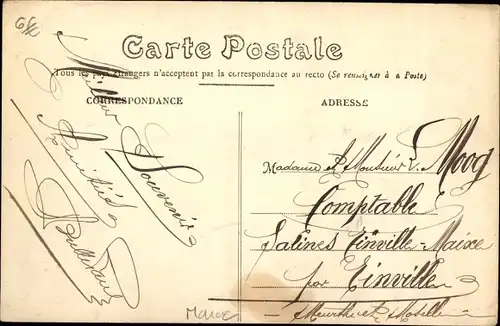 Carte Postale
Tous les pays étrangers n'acceptent pas la correspondance au recto (Se renseigner à la Poste)
CORRESPONDANCE
ADRESSE
Meilleur
Souvenir
Amitiés
Madame et Monsieur L. Moog
Comptable
Salines Einville-Maixe
par Einville
Meurthe et Moselle